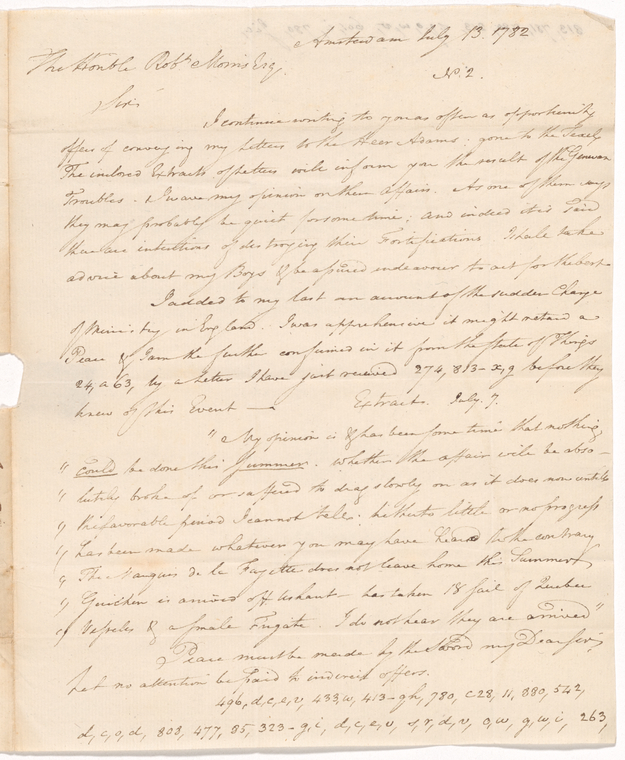 Amsterdam July 13. 1782
The Honble Robt Morris Esq.
No. 2.
Sir
I continue writing to you as often as opportunity
offers of conveying my Letters to the Heer Adams; gone to the
The inclosed Extracts of Letters will inform you the result of the Genevan
Troubles. I wave my opinion on their Affairs. As one of them says
they may probably be quiet for some time; and indeed it is said
there are intentions of destroying their Fortifications. I shall take
advice about my Boys & be assured endeavour to act for the best
I added to my last an account of the sudden Change
of Ministry in England. I was apprehensive it might retard a
Peace & I am the further confirmed in it from the State of Things
24, a 63, by a Letter I have just received 274, 813 - x, g before they
knew of this Event — Extracts. July 7.
" My opinion is & has been some time that nothing
" could be done this Summer. Whether the affair will be abso-
" lutely broke of or suffered to drag slowly on as it does now until
" the favorable period I cannot tell. hitherto little or no progress
" has been made whatever you may have heard to the contrary
" The Marquis de la Fayette does not leave home this Summer
" Guichen is arrived off Ushant — has taken 18 sail of Quebec
" Vessels & a small Frigate. I do not hear they are arrived "
Peace must be made by the Sword my Dear Sir,
Let no attention be paid to indirect offers.
496, d, c, e, v, 433, w, 413 - gh, 780, c 28, 11, 880, 542,
d, c, o, d, 803, 477, 85, 323 - g, i, d, c, e, v, s, r, d, v, o, w, g, w, i, 263,